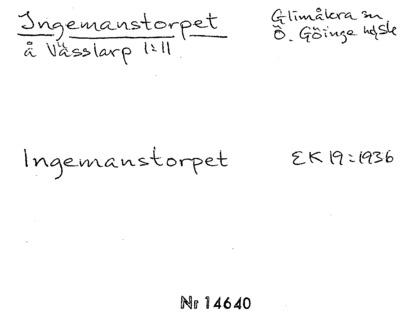 Ingemanstorpet
å Vässlarp 1:11
Glimåkra sn
Ö. Göinge hd, Sk
Ingemanstorpet
EK 19:1936
Nr 14640